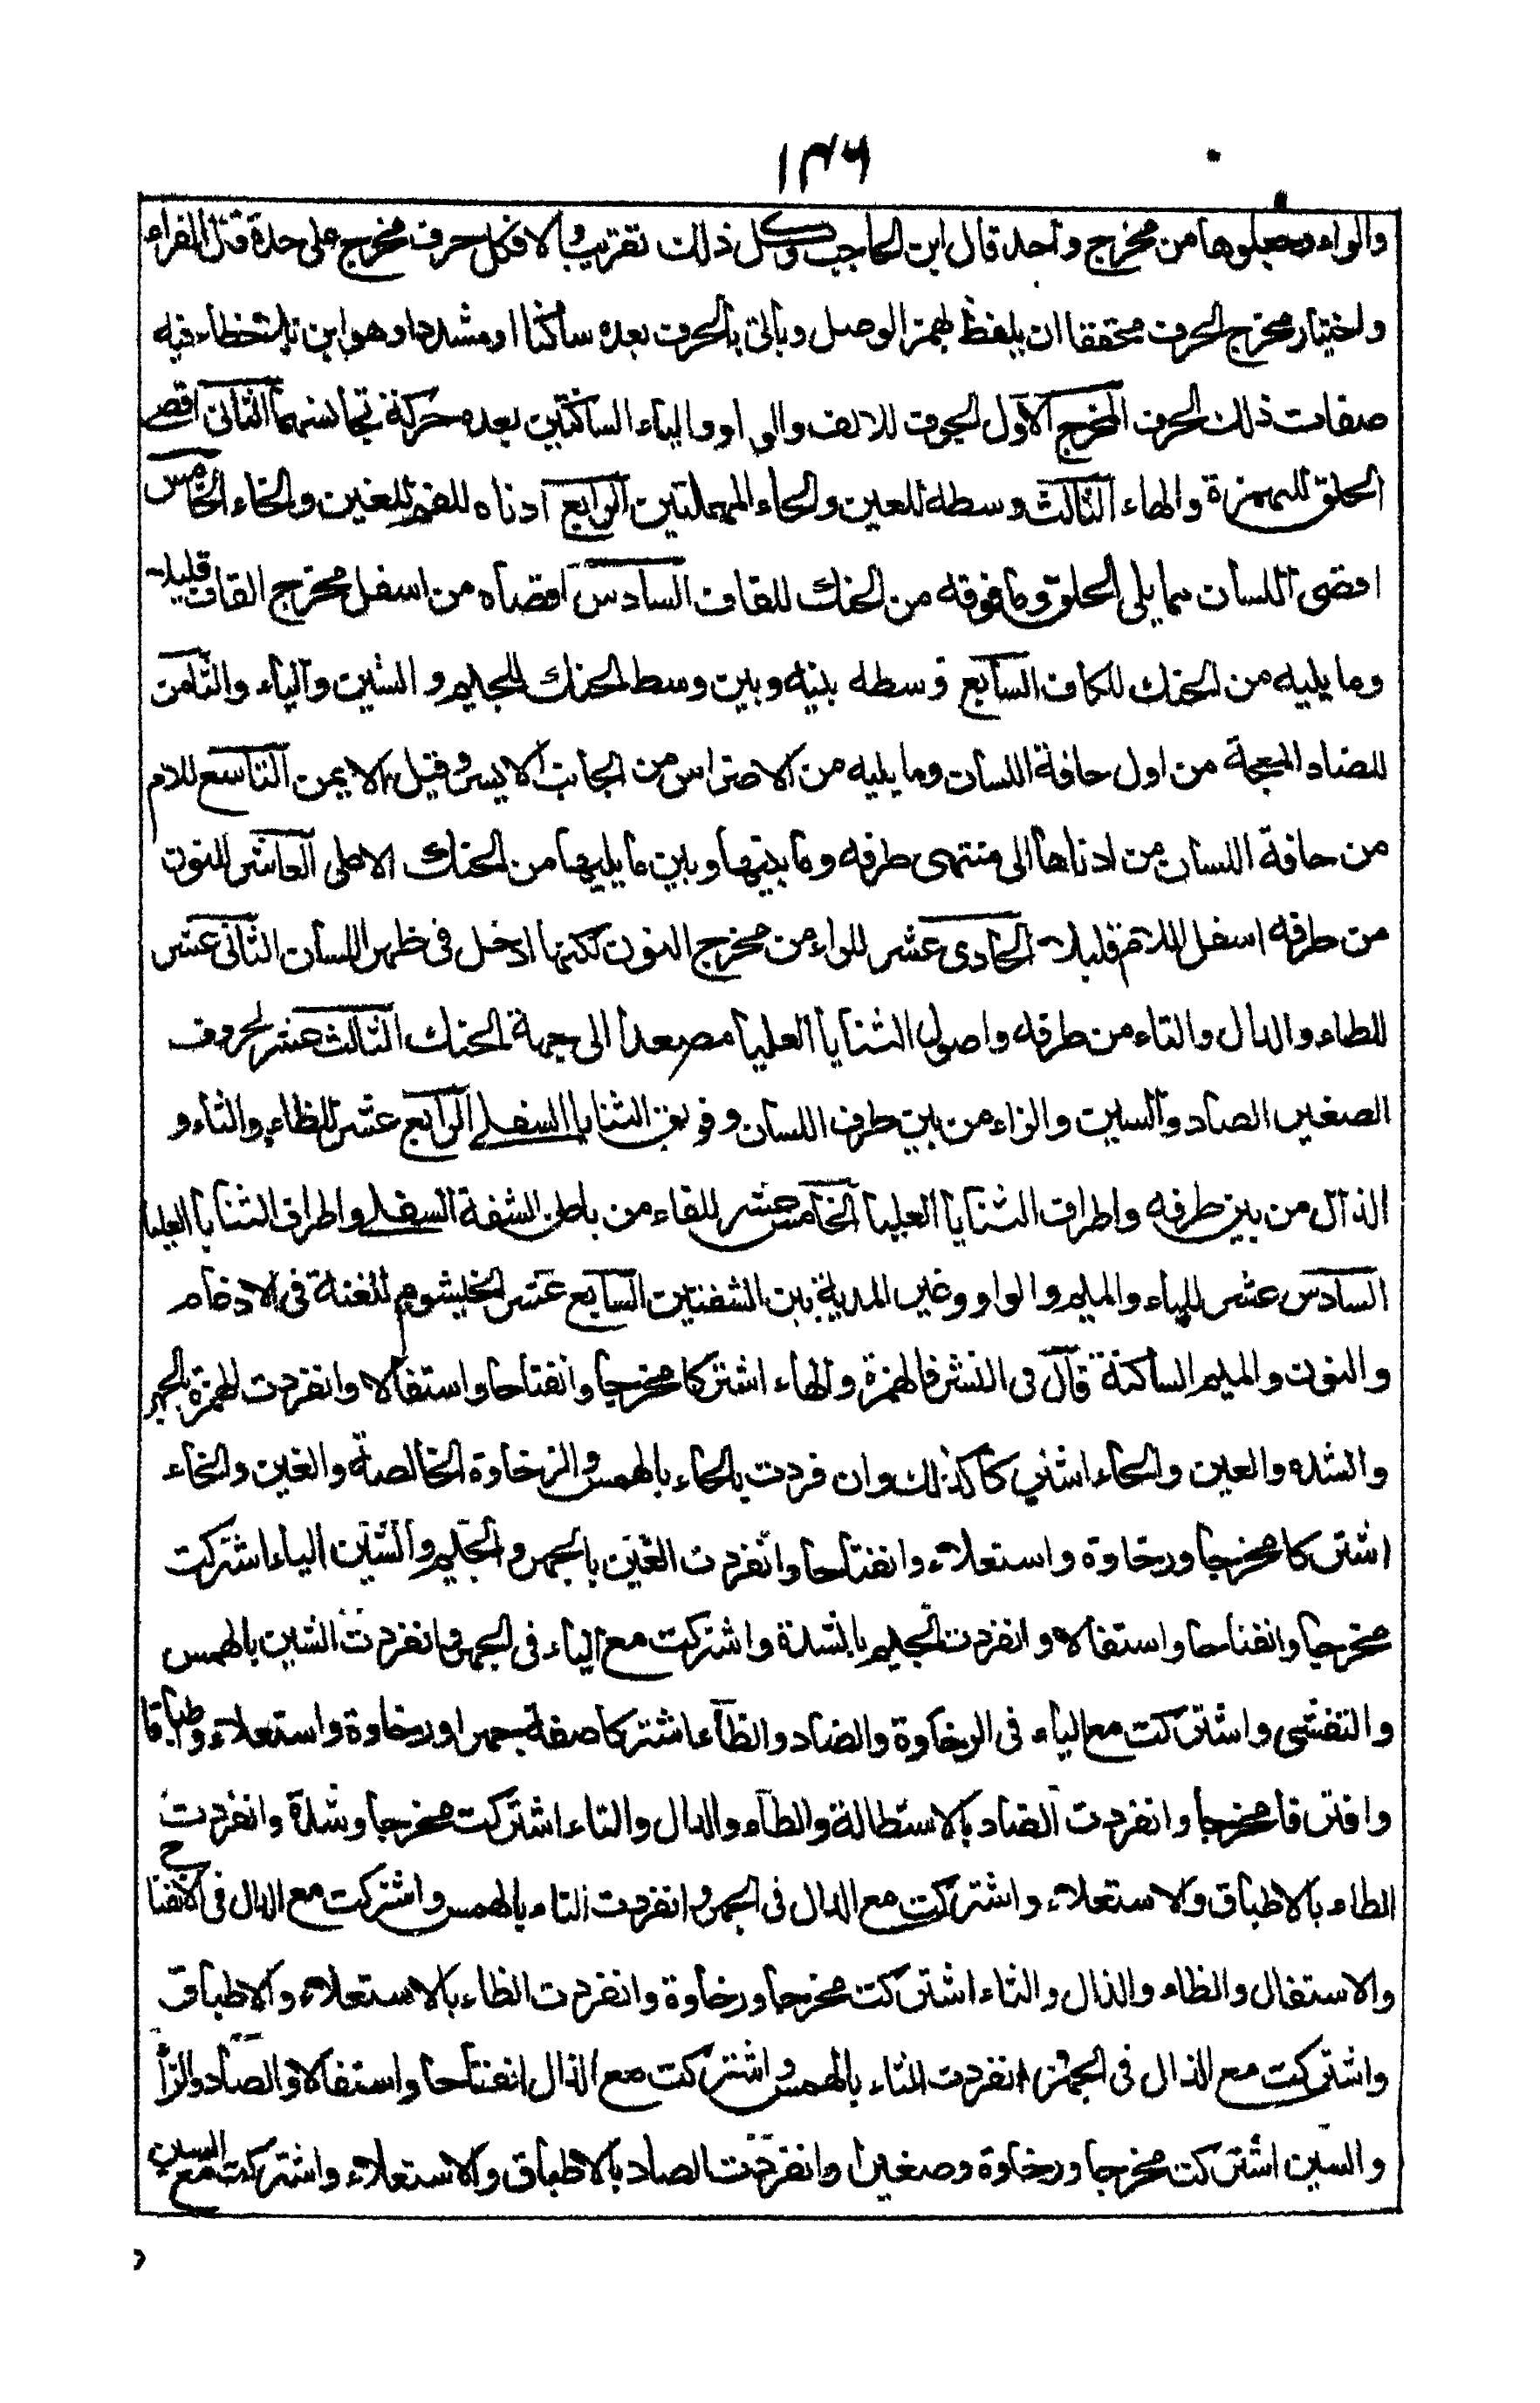 ١٣٦
والراء وجعلوها من مخرج واحد قال ابن الحاجب وكل ذلك تقريب والا فكل حرف مخرج على حدة قال الفراء
واختيار مخرج الحرف محققا ان يلفظ بهمزة الوصل وياتي بالحرف بعده ساكنا او مشددا وهو ابين ملاحظا فيه
صفات ذلك الحرف المخرج الاول الجوف للالف والواو والياء الساكنتين بعده حركة تجانسهما الثاني اقصى
الحلق للهمزة والهاء الثالث وسطه للعين والحاء المهملتين الرابع ادناه للفم للغين والخاء الخامس
اقصى اللسان مما يلي الحلق وما فوقه من الحنك للقاف السادس اقصاه من اسفل مخرج القاف قليلا
وما يليه من الحنك للكاف السابع وسطه بينه وبين وسط الحنك للجيم والشين والياء والثامن
للضاد المعجمة من اول حافة اللسان وما يليه من الاضراس من الجانب الايسر وقيل الايمن التاسع للام
من حافة اللسان من ادناها الى منتهى طرفه وما بينها وبين ما يليها من الحنك الاعلى العاشر للنون
من طرفه اسفل اللام قليلا الحادى عشر للراء من مخرج النون لكنها ادخل في ظهر اللسان الثاني عشر
للطاء والدال والتاء من طرفه واصول الثنايا العليا مصعدا الى جهة الحنك الثالث عشر لحروف
الصغير الصاد والسين والزاء من بين طرف اللسان وفويق الثنايا السفلى الرابع عشر للظاء والثاء و
الذال من بين طرفه واطراف الثنايا العليا الخامس عشر للفاء من باطن الشفة السفلى واطراف الثنايا العليا
السادس عشر للباء والميم والواو وغير المدية بين الشفتين السابع عشر الخيشوم للغنة في الادغام
والنون والميم الساكنة قال في النشر فالهمزة والهاء اشتركا مخرجا وانفتاحا واستفالا وانفردت الهمزة بالجهر
والشدة والعين والحاء اشتركا كذلك وانفردت الحاء بالهمس والرخاوة الخالصة والغين والخاء
اشتركا مخرجا ورخاوة واستعلاء وانفتاحا وانفردت الغين بالجهر والجيم والشين الياء اشتركت
مخرجا وانفتاحا واستفالا وانفردت الجيم بالشدة واشتركت مع الياء في الجهر وانفردت الشين بالهمس
والتفشى واشتركت مع الياء في الرخاوة والضاد والظاء اشتركا صفة جهرا ورخاوة واستعلاء وطباقا
وافترقا مخرجا وانفردت الضاد بالاستطالة والطاء والدال والتاء اشتركت مخرجا وشدة وانفردت
الطاء بالاطباق والاستعلاء واشتركت مع الدال في الجهر وانفردت التاء بالهمس واشتركت مع الدال في الانفتاح
والاستفال والظاء والذال والثاء اشتركت مخرجا ورخاوة وانفردت الظاء بالاستعلاء والاطباق
واشتركت مع الذال في الجهر وانفردت الثاء بالهمس واشتركت مع الذال انفتاحا واستفالا والصاد والزا
والسين اشتركت مخرجا ورخاوة وصغيرا وانفردت الصاد بالاطباق والاستعلاء واشتركت مع السين